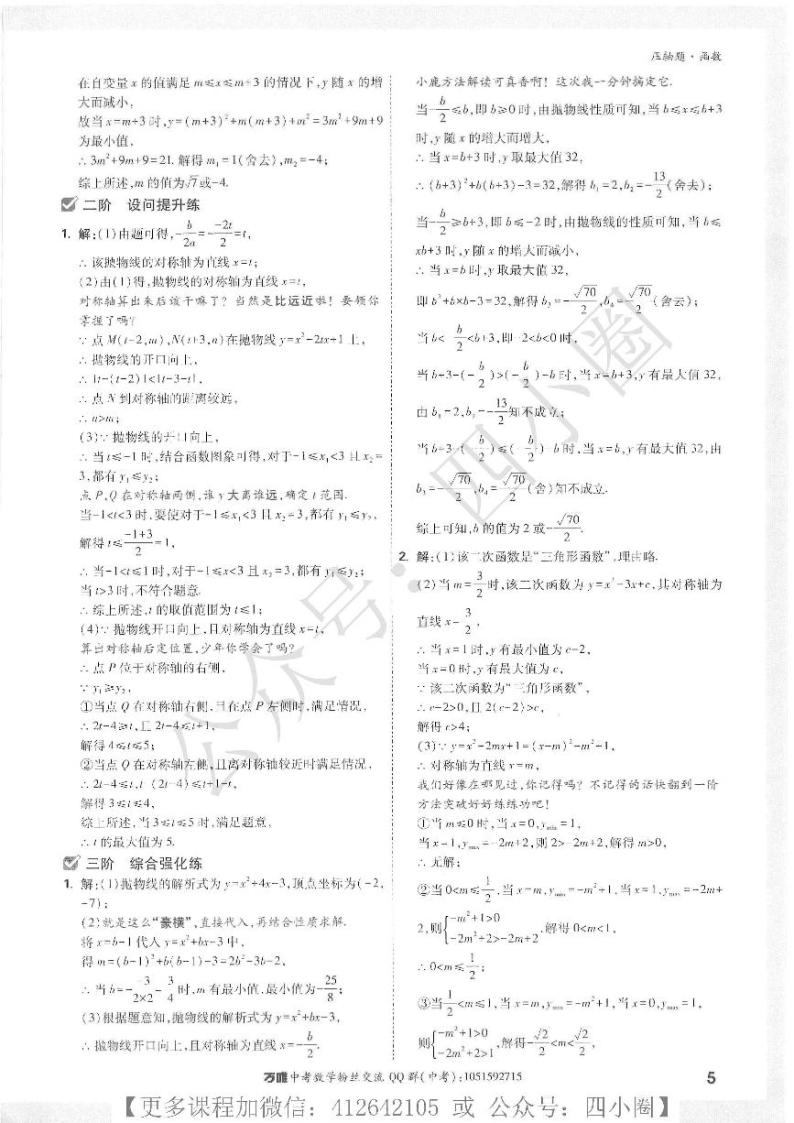 压轴题·函数
在自变量x的值满足m≤x≤m+3的情况下,y随x的增
大而减小,
故当x=m+3时,y=(m+3)²+m(m+3)+m²=3m²+9m+9
为最小值,
∴3m²+9m+9=21.解得m₁=1(舍去),m₂=-4;
综上所述,m的值为√7或-4.
二阶 设问提升练
1. 解:(1)由题可得,-b/2a=-(-2t)/2=t,
∴该抛物线的对称轴为直线x=t;
(2)由(1)得,抛物线的对称轴为直线x=t,
对称轴算出来后该干嘛了?当然是比远近啦!要领你
掌握了吗?
∵点M(t-2,m),N(t+3,n)在抛物线y=x²-2tx+1上,
∴抛物线的开口向上,
∴|t-(t-2)|<|t-3-t|,
∴点N到对称轴的距离较远,
∴n>m;
(3)∵抛物线的开口向上,
∴当t≤-1时,结合函数图象可得,对于-1≤x₁<3且x₂=
3,都有y₁≤y₂;
点P,Q在对称轴两侧,谁y大离谁远,确定t范围.
当-1<t<3时,要使对于-1≤x₁<3且x₂=3,都有y₁≤y₂,
解得t≤(-1+3)/2=1,
∴当-1<t≤1时,对于-1≤x<3且x₂=3,都有y₁≤y₂;
当t>3时,不符合题意.
∴综上所述,t的取值范围为t≤1;
(4)∵抛物线开口向上,且对称轴为直线x=t,
算出对称轴后定位置,少年你学会了吗?
∴点P位于对称轴的右侧,
∵y₁≥y₂,
①当点Q在对称轴右侧,且在点P左侧时,满足情况,
∴2t-4≥t,且2t-4≤t+1,
解得4≤t≤5;
②当点Q在对称轴左侧,且离对称轴较近时满足情况,
∴2t-4≤t,t-(2t-4)≤t+1-t,
解得3≤t≤4,
综上所述,当3≤t≤5时,满足题意,
∴t的最大值为5.
三阶 综合强化练
1. 解:(1)抛物线的解析式为y=x²+4x-3,顶点坐标为(-2,
-7);
(2)就是这么“豪横”,直接代入,再结合性质求解.
将x=b-1代入y=x²+bx-3中,
得m=(b-1)²+b(b-1)-3=2b²-3b-2,
∴当b=-(-3)/(2×2)=3/4时,m有最小值,最小值为-25/8;
(3)根据题意知,抛物线的解析式为y=x²+bx-3,
∴抛物线开口向上,且对称轴为直线x=-b/2.
小鹿方法解读可真香啊!这次我一分钟搞定它.
当-b/2≤b,即b≥0时,由抛物线性质可知,当b≤x≤b+3
时,y随x的增大而增大,
∴当x=b+3时,y取最大值32,
∴(b+3)²+b(b+3)-3=32,解得b₁=2,b₂=-13/2(舍去);
当-b/2≥b+3,即b≤-2时,由抛物线的性质可知,当b≤
x≤b+3时,y随x的增大而减小,
∴当x=b时,y取最大值32,
即b²+b×b-3=32,解得b₃=-√70/2,b₄=√70/2(舍去);
当b<-b/2<b+3,即-2<b<0时,
当b+3-(-b/2)>(-b/2)-b时,当x=b+3,y有最大值32,
由b₁=2,b₂=-13/2知不成立;
当b+3-(-b/2)≤(-b/2)-b时,当x=b,y有最大值32,由
b₃=-√70/2,b₄=√70/2(舍)知不成立.
综上可知,b的值为2或-√70/2.
2. 解:(1)该二次函数是“三角形函数”,理由略.
(2)当m=3/2时,该二次函数为y=x²-3x+c,其对称轴为
直线x=3/2,
∴当x=1时,y有最小值为c-2,
当x=0时,y有最大值为c,
∵该二次函数为“三角形函数”,
∴c-2>0,且2(c-2)>c,
解得c>4;
(3)∵y=x²-2mx+1=(x-m)²-m²+1,
∴对称轴为直线x=m,
我们好像在哪见过,你记得吗?不记得的话快翻到一阶
方法突破好好练练功吧!
①当m≤0时,当x=0,yₘᵢₙ=1,
当x=1,yₘₐₓ=-2m+2,则2>-2m+2,解得m>0,
∴无解;
②当0<m≤1/2,当x=m,yₘᵢₙ=-m²+1,当x=1,yₘₐₓ=-2m+
2,则{-m²+1>0 -2m²+2>-2m+2,解得0<m<1,
∴0<m≤1/2;
③当1/2<m≤1,当x=m,yₘᵢₙ=-m²+1,当x=0,yₘₐₓ=1,
则{-m²+1>0 -2m²+2>1,解得-√2/2<m<√2/2,
公众号:四小圈
万唯中考数学粉丝交流QQ群(中考):1051592715
5
【更多课程加微信: 412642105 或 公众号: 四小圈】